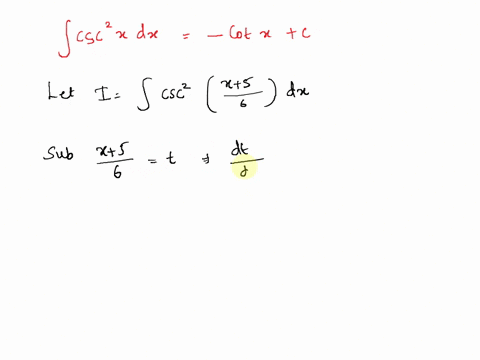 ∫ csc² x dx = - Cot x + c
Let I = ∫ csc² ( (x+5)/6 ) dx
Sub (x+5)/6 = t ⇒ dt/d